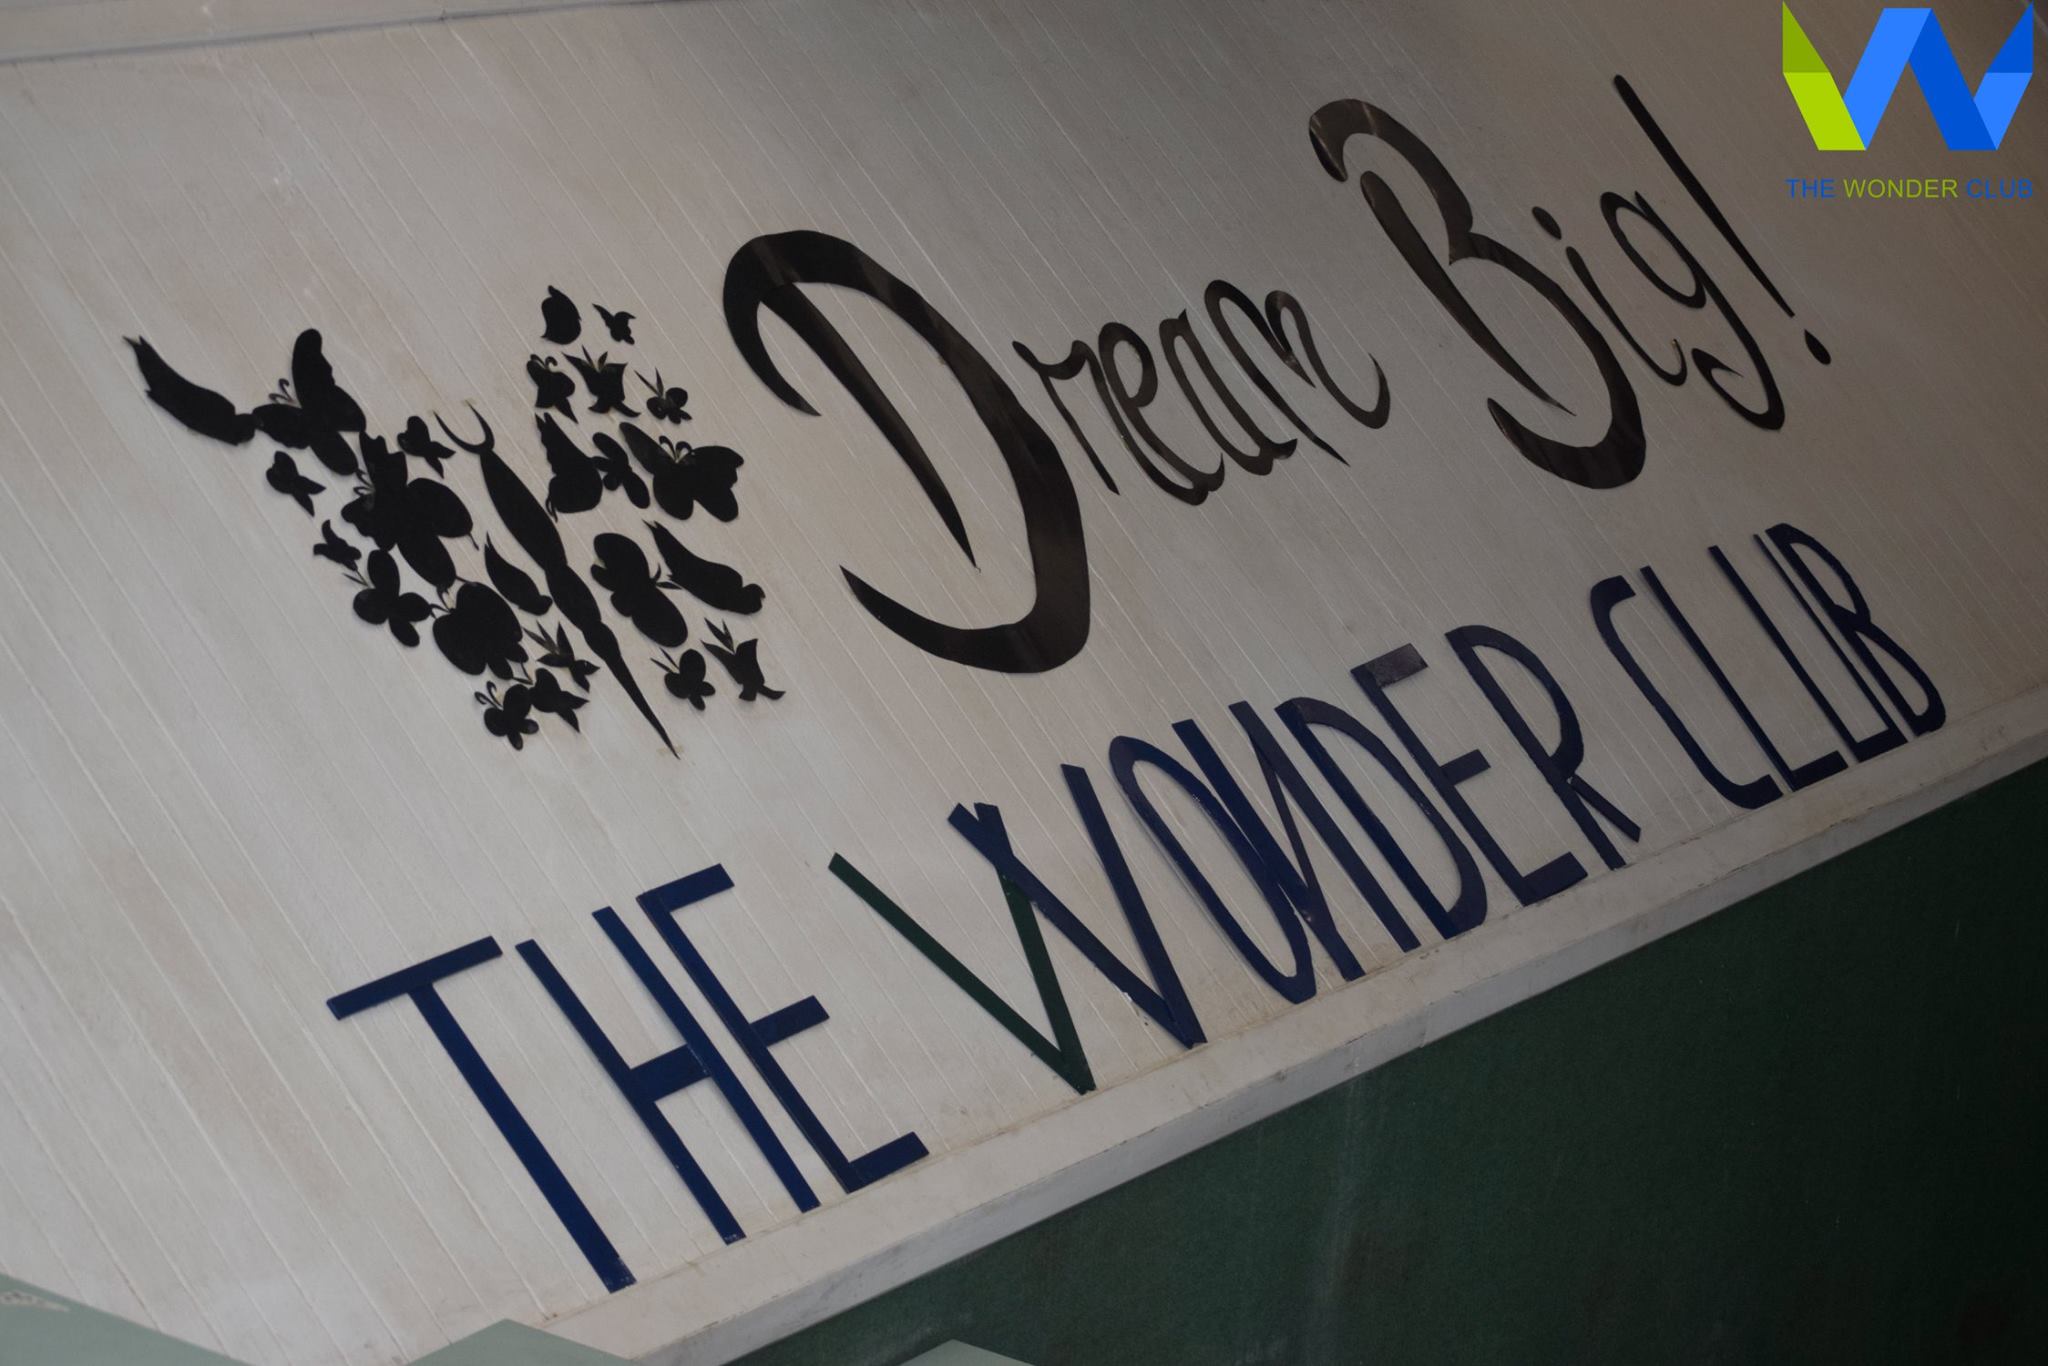 THE WONDER CLUB
Dream Big!
THE WONDER CLUB